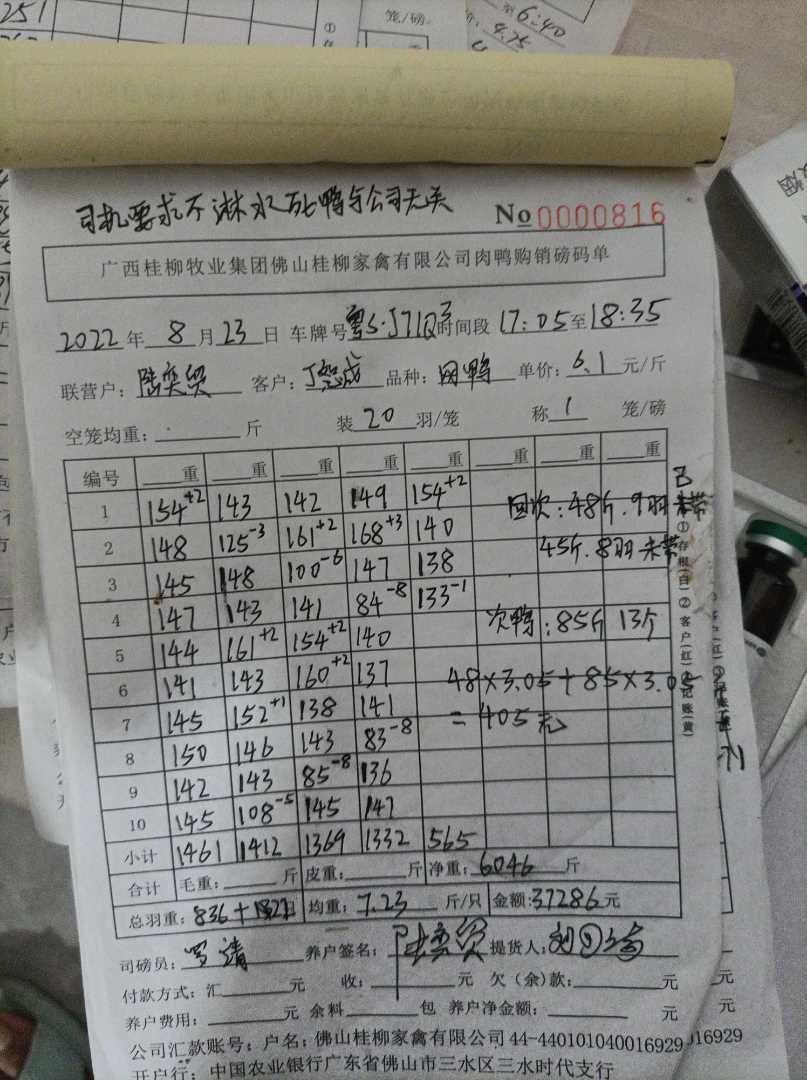 251
笼/磅
6:40
4.75
司机要求不淋水死鸭与公司无关
No 0000816
广西桂柳牧业集团佛山桂柳家禽有限公司肉鸭购销磅码单
2022年 8月23日 车牌号 粤S·J71Q3 时间段 17:05至18:35
联营户: 客户: 品种: 单价: 6.1 元/斤
空笼均重: 斤 装 20 羽/笼 称 1 笼/磅
编号 重 重 重 重 重 重 重 重
1 154+2 143 142 149 154+2 48斤.9羽未带
2 148 125-3 161+2 168+3 140 45斤.8羽未带
3 145 148 100-6 147 138
4 147 143 141 84-8 133-1 次鸭:85斤 13个
5 144 161+2 154+2 140
6 141 143 160+2 137 48×3.05+85×3.05
7 145 152+1 138 141 =405元
8 150 146 143 83-8
9 142 143 85-8 136
10 145 108-5 145 147
小计 1461 1412 1369 1332 565
合计 毛重: 斤 皮重: 斤 净重: 6046 斤
总羽重: 836+ 均重: 7.23 斤/只 金额: 37286元
司磅员: 养户签名: 提货人:
付款方式: 汇 元 收: 元 欠(余)款: 元
养户费用: 元 余料 包 养户净金额: 元
公司汇款账号: 户名: 佛山桂柳家禽有限公司 44-440101040016929
开户行: 中国农业银行广东省佛山市三水区三水时代支行
①存根(白)②客户(红)③记账(黄)
元
元
016929